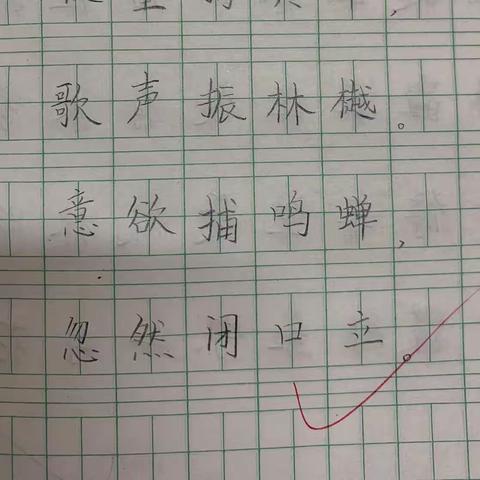 歌声振林樾。
意欲捕鸣蝉，
忽然闭口立。